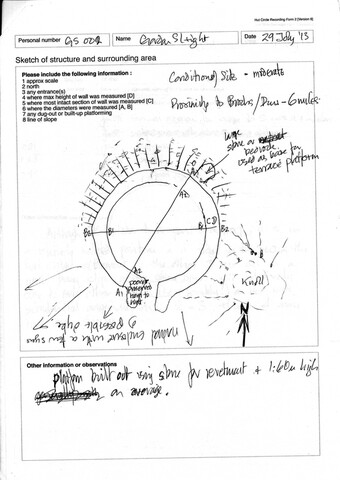 Hut Circle Recording Form 2 (Version 6)
Personal number GS 001 Name Gordon Sleight Date 29 July '13
Sketch of structure and surrounding area
Please include the following information :
1 approx scale
2 north
3 any entrance(s)
4 where max height of wall was measured [D]
5 where most intact section of wall was measured [C]
6 where the diameters were measured [A, B]
7 any dug-out or built-up platforming
8 line of slope
Condition of Site - moderate
Proximity to Brochs/Duns - 6 miles
large
stone or
bedrock
used as base for
terrace platform
B2 B1 CD B2
A2
A1
Knoll
N
Other information or observations
platform built out using stone for revetment + 1.60m high
on average.